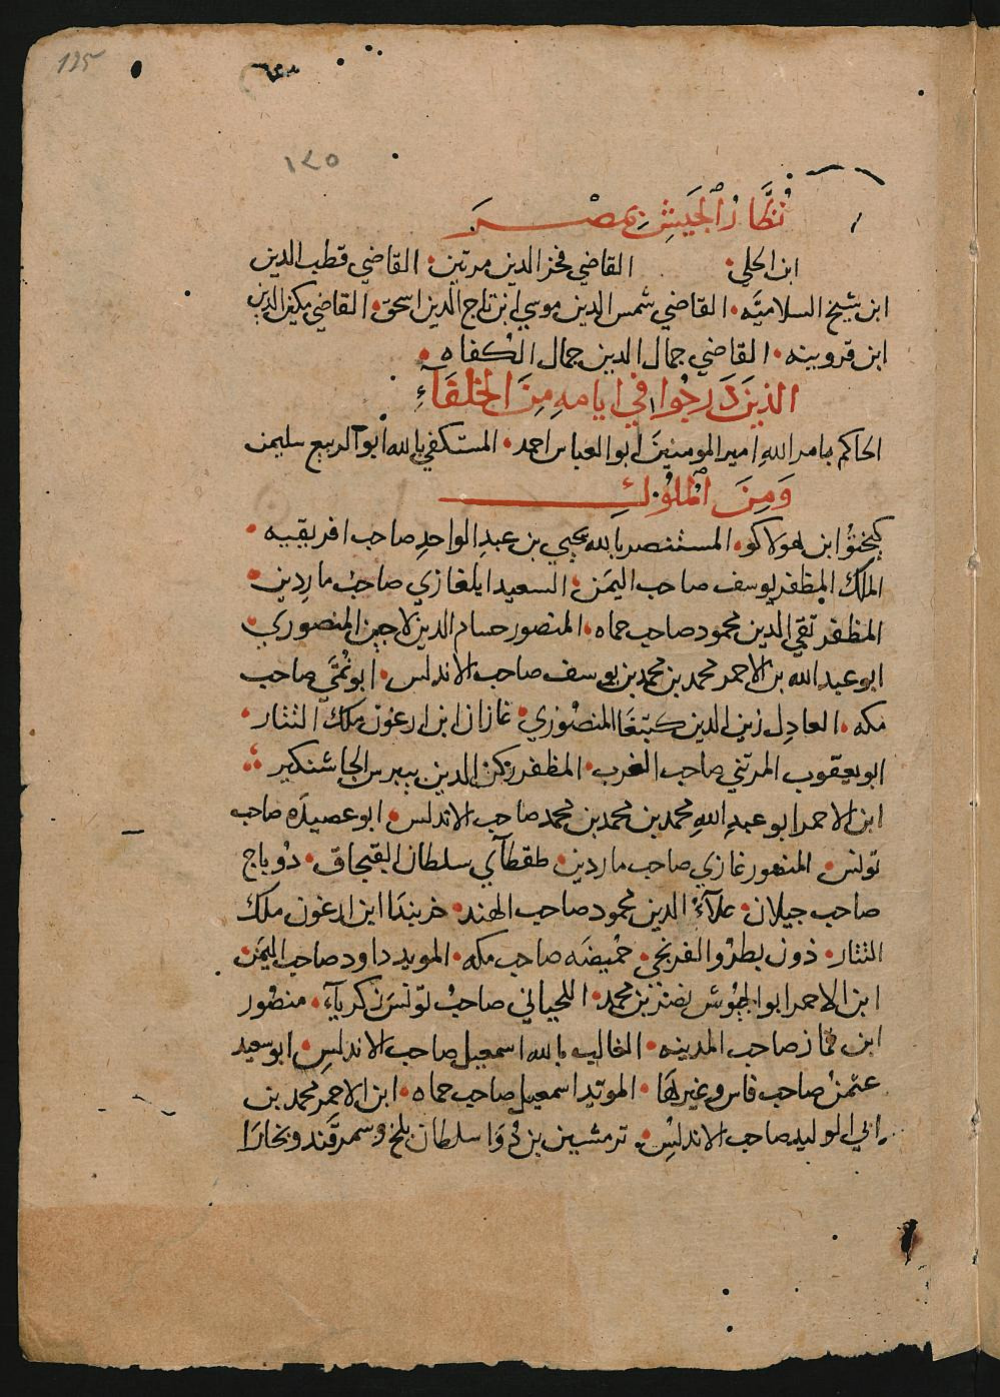 125
١٢٥
نُظَّارُ الجَيشِ بمِصْرَ
ابن الحلي· القاضي فخر الدين مرتين· القاضي قطب الدين
ابن شيخ السلاميَّه· القاضي شمس الدين موسي ابن تاج الدين اسحق· القاضي مكين الدين
ابن قروينه· القاضي جمال الدين جمال الكفاه·
الذينَ دَرجُوا في ايامهِ مِنَ الخلفَآءِ
الحاكم بامر اللهِ امير المومنينَ ابو العباس احمد· المستكفي بالله ابو الربيع سليمن
وَمِنَ المُلوُكِ
كيختوُ ابن هولاكو· المستنصر بالله يحيي بن عبدِ الواحدِ صاحب افريقيه·
الملك المظفر يوسف صاحب اليَمَن· السعيد ايلغازي صاحبُ مارِدين·
المظفر تقي الدين محمود صاحب حماه· المنصور حسام الدين لاجين المنصوري·
ابو عبد الله بن الاحمر محمد بن محمد بن يوسف صاحب الاندلس· ابو نُمَّي صاحب
مكه· العادِل زين الدين كتبغَا المنصُوري· غازان ابن ارغون ملك التتار·
ابو يعقوب المريني صاحب الغرب· المظفر ركن الدين بيبرس الجاشنكير
ابن الاحمر ابو عبدِ اللهِ محمد بن محمد بن محمد صاحب الاندلس· ابو عصيدَه صاحب
تونس· المنصور غازي صاحب ماردين· طقطآي سلطان القبجاق· دُوباج
صاحب جيلان· علآءُ الدين محمود صاحب الهند· خربندَا ابن ارغون ملك
التتار· ذون بطرُو الفرنجي· حُميضَه صاحب مكه· المويد داود صاحب اليَمَن
ابن الاحمر ابو الجيُوش نصر بن محمد· اللحياني صاحبُ تونسَ زكريآء· منصُور
ابن جماز صاحب المدينه· الغالب بالله اسمعيل صاحب الاندلسِ· ابو سعيد
عثمنُ صاحب فاس وغيرهَا· المويد اسمعيل صاحب حماه· ابن الاحمر محمد بن
ابي الوليد صاحب الاندلسِ· ترمشين بن دُوَا سلطان بلخ وسمرقَند وبخارَا